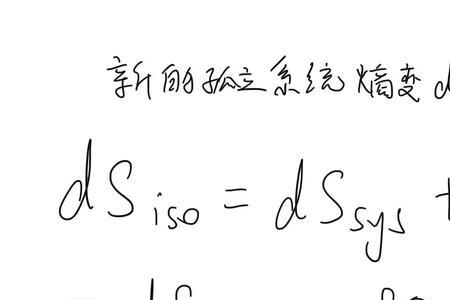 新的孤立系统熵变 d
dS iso = dS sys +